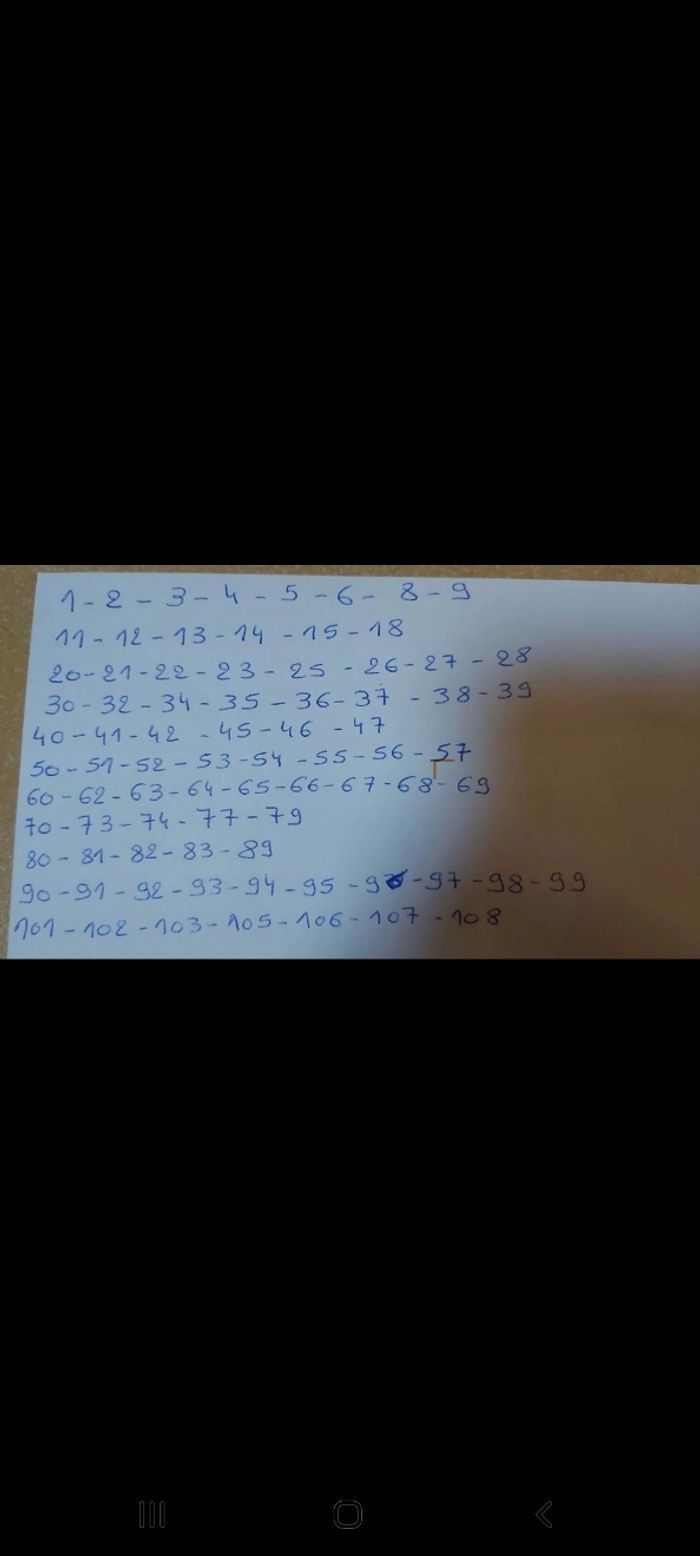 1 - 2 - 3 - 4 - 5 - 6 - 8 - 9
11 - 12 - 13 - 14 - 15 - 18
20 - 21 - 22 - 23 - 25 - 26 - 27 - 28
30 - 32 - 34 - 35 - 36 - 37 - 38 - 39
40 - 41 - 42 - 45 - 46 - 47
50 - 51 - 52 - 53 - 54 - 55 - 56 - 57
60 - 62 - 63 - 64 - 65 - 66 - 67 - 68 - 69
70 - 73 - 74 - 77 - 79
80 - 81 - 82 - 83 - 89
90 - 91 - 92 - 93 - 94 - 95 - 96 - 97 - 98 - 99
101 - 102 - 103 - 105 - 106 - 107 - 108